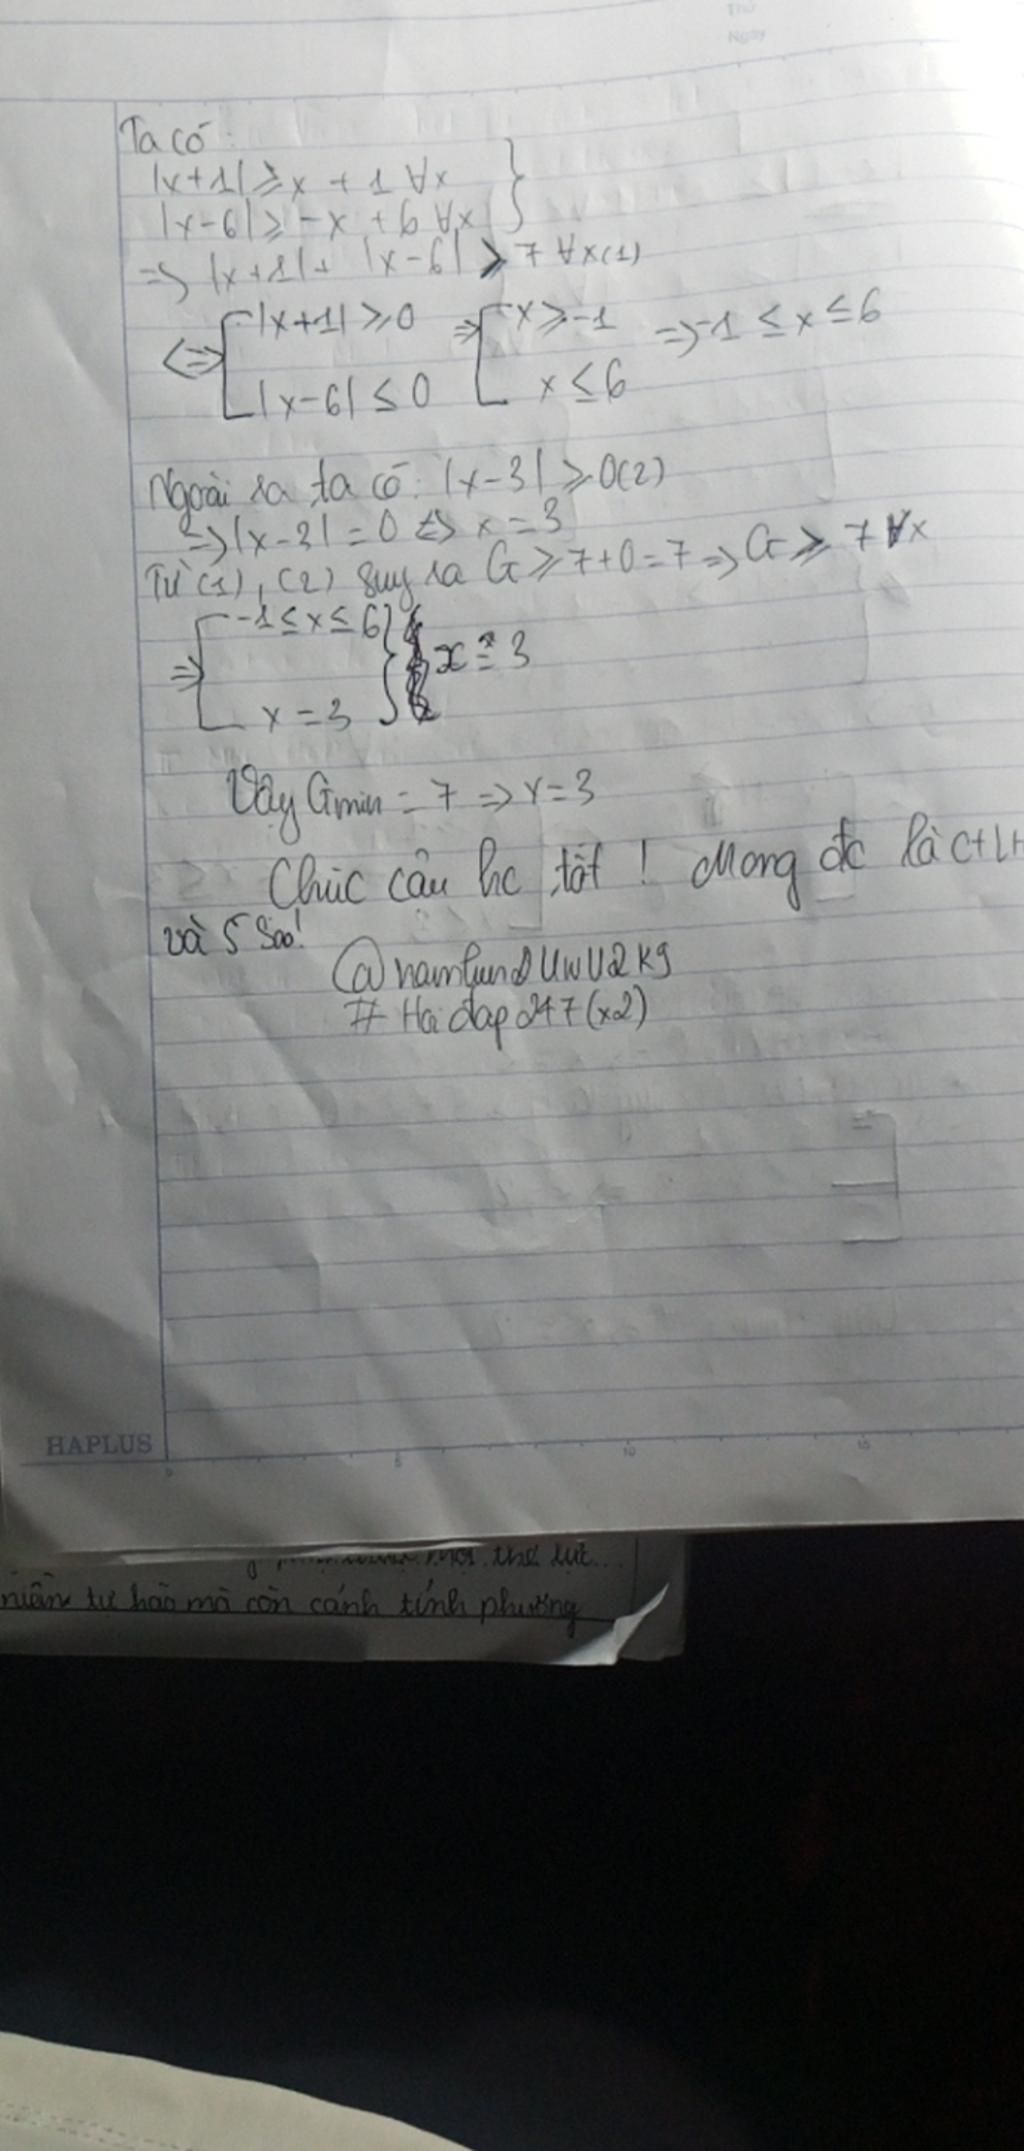 Thứ
Ngày
Ta có:
|x+1| ⩾ x + 1 ∀x
|x-6| ⩾ -x + 6 ∀x }
=> |x+1| + |x-6| ⩾ 7 ∀x(1)
<=> [ |x+1| ⩾ 0 => [ x ⩾ -1 => -1 ≤ x ≤ 6
|x-6| ≤ 0 x ≤ 6
Ngoài ra ta có: |x-3| ⩾ 0(2)
=> |x-3| = 0 <=> x = 3
Từ (1), (2) suy ra G ⩾ 7+0=7 => G ⩾ 7 ∀x
=> [ -1 ≤ x ≤ 6 } x = 3
x = 3
Vậy Gmin = 7 => x = 3
Chúc cậu hc tốt ! Mong đc là c+LH
và 5 sao!
UwU2k9
# Hoidap247(x2)
HAPLUS
0 5 10 15
thể lực...
niềm tự hào mà còn cánh tính phương